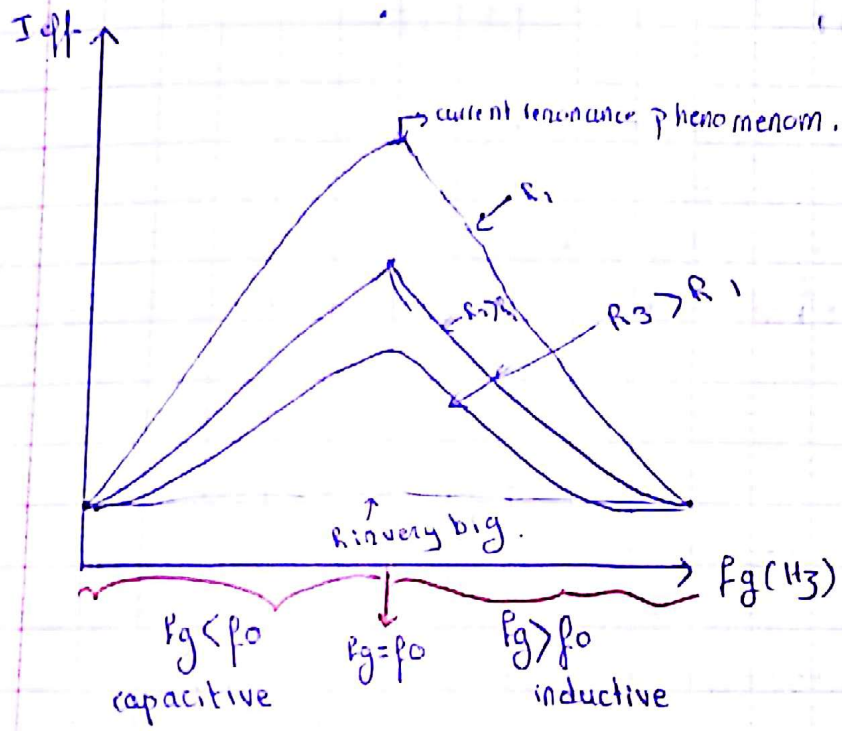 Ieff
current resonance phenomenom.
R1
R2>R1
R3>R1
R in very big.
fg(Hz)
fg<fo
capacitive
fg=fo
fg>fo
inductive